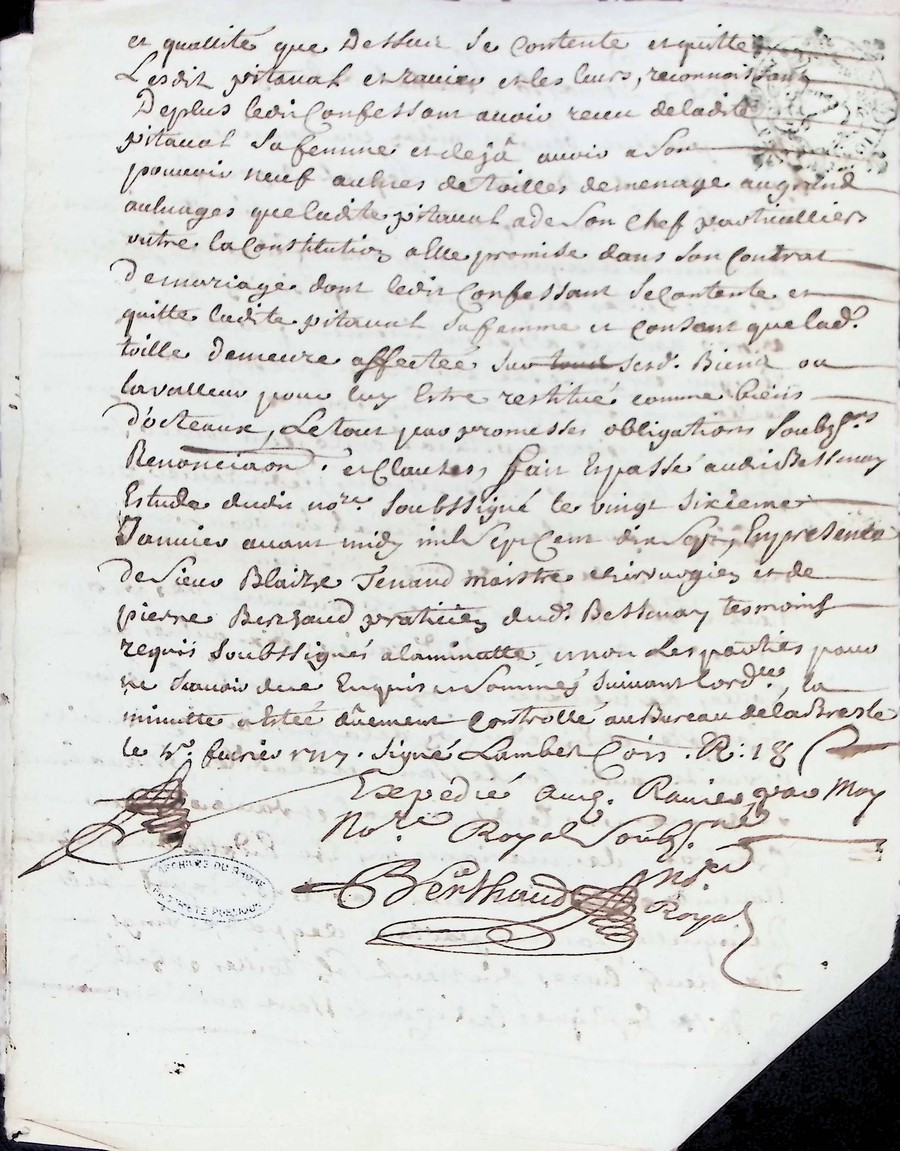 et quallité que Dessus se Contente et quitte
Lesdit pitaval et ravier et les leurs, reconnoissant
Deplus ledit Confessant avoir receu deladite
pitaval sa femme et dejâ avoir a Son
pouvoir neuf aulnes de toilles demenage au grand
aulnages que ladite pitaval a de Son Chef particulliers
outre la Constitution a Elle promise dans Son Contrat
De mariage dont ledit Confessant Se Contente et
quitte ladite pitaval sa femme et Consent que lad.
toille demeure affectée sur tous sesd. Biens ou
la valleur pour luy Estre restitué comme biens
d'octeaux, Le tout par promesses obligations Soubz.ons
Renonciaon. et Clauses, fait Et passé audit Bessenay
Estude dudit no.re Soubssigné le vingt sixieme
Janvier avant midy mil Sept Cent dix Sept, En presence
de Sieur Blaize Tenaud maistre chirurgien et de
pierre praticien dud. Bessenay tesmoins
requis Soubssignés a la minutte, et non Les parties pour
ne Scavoir de ce Enquis et Sommés Suivant l'ord.ce, la
minutte a Estée dûement Controllé au Bureau de la Bresle
le fevrier 1717. Signé Lambert Com. R: 18
Expédié aud. Ravier par Moy
No.re Royal Soubs.né
Berthaud no.re
Royal
ARCHIVES DU RHONE